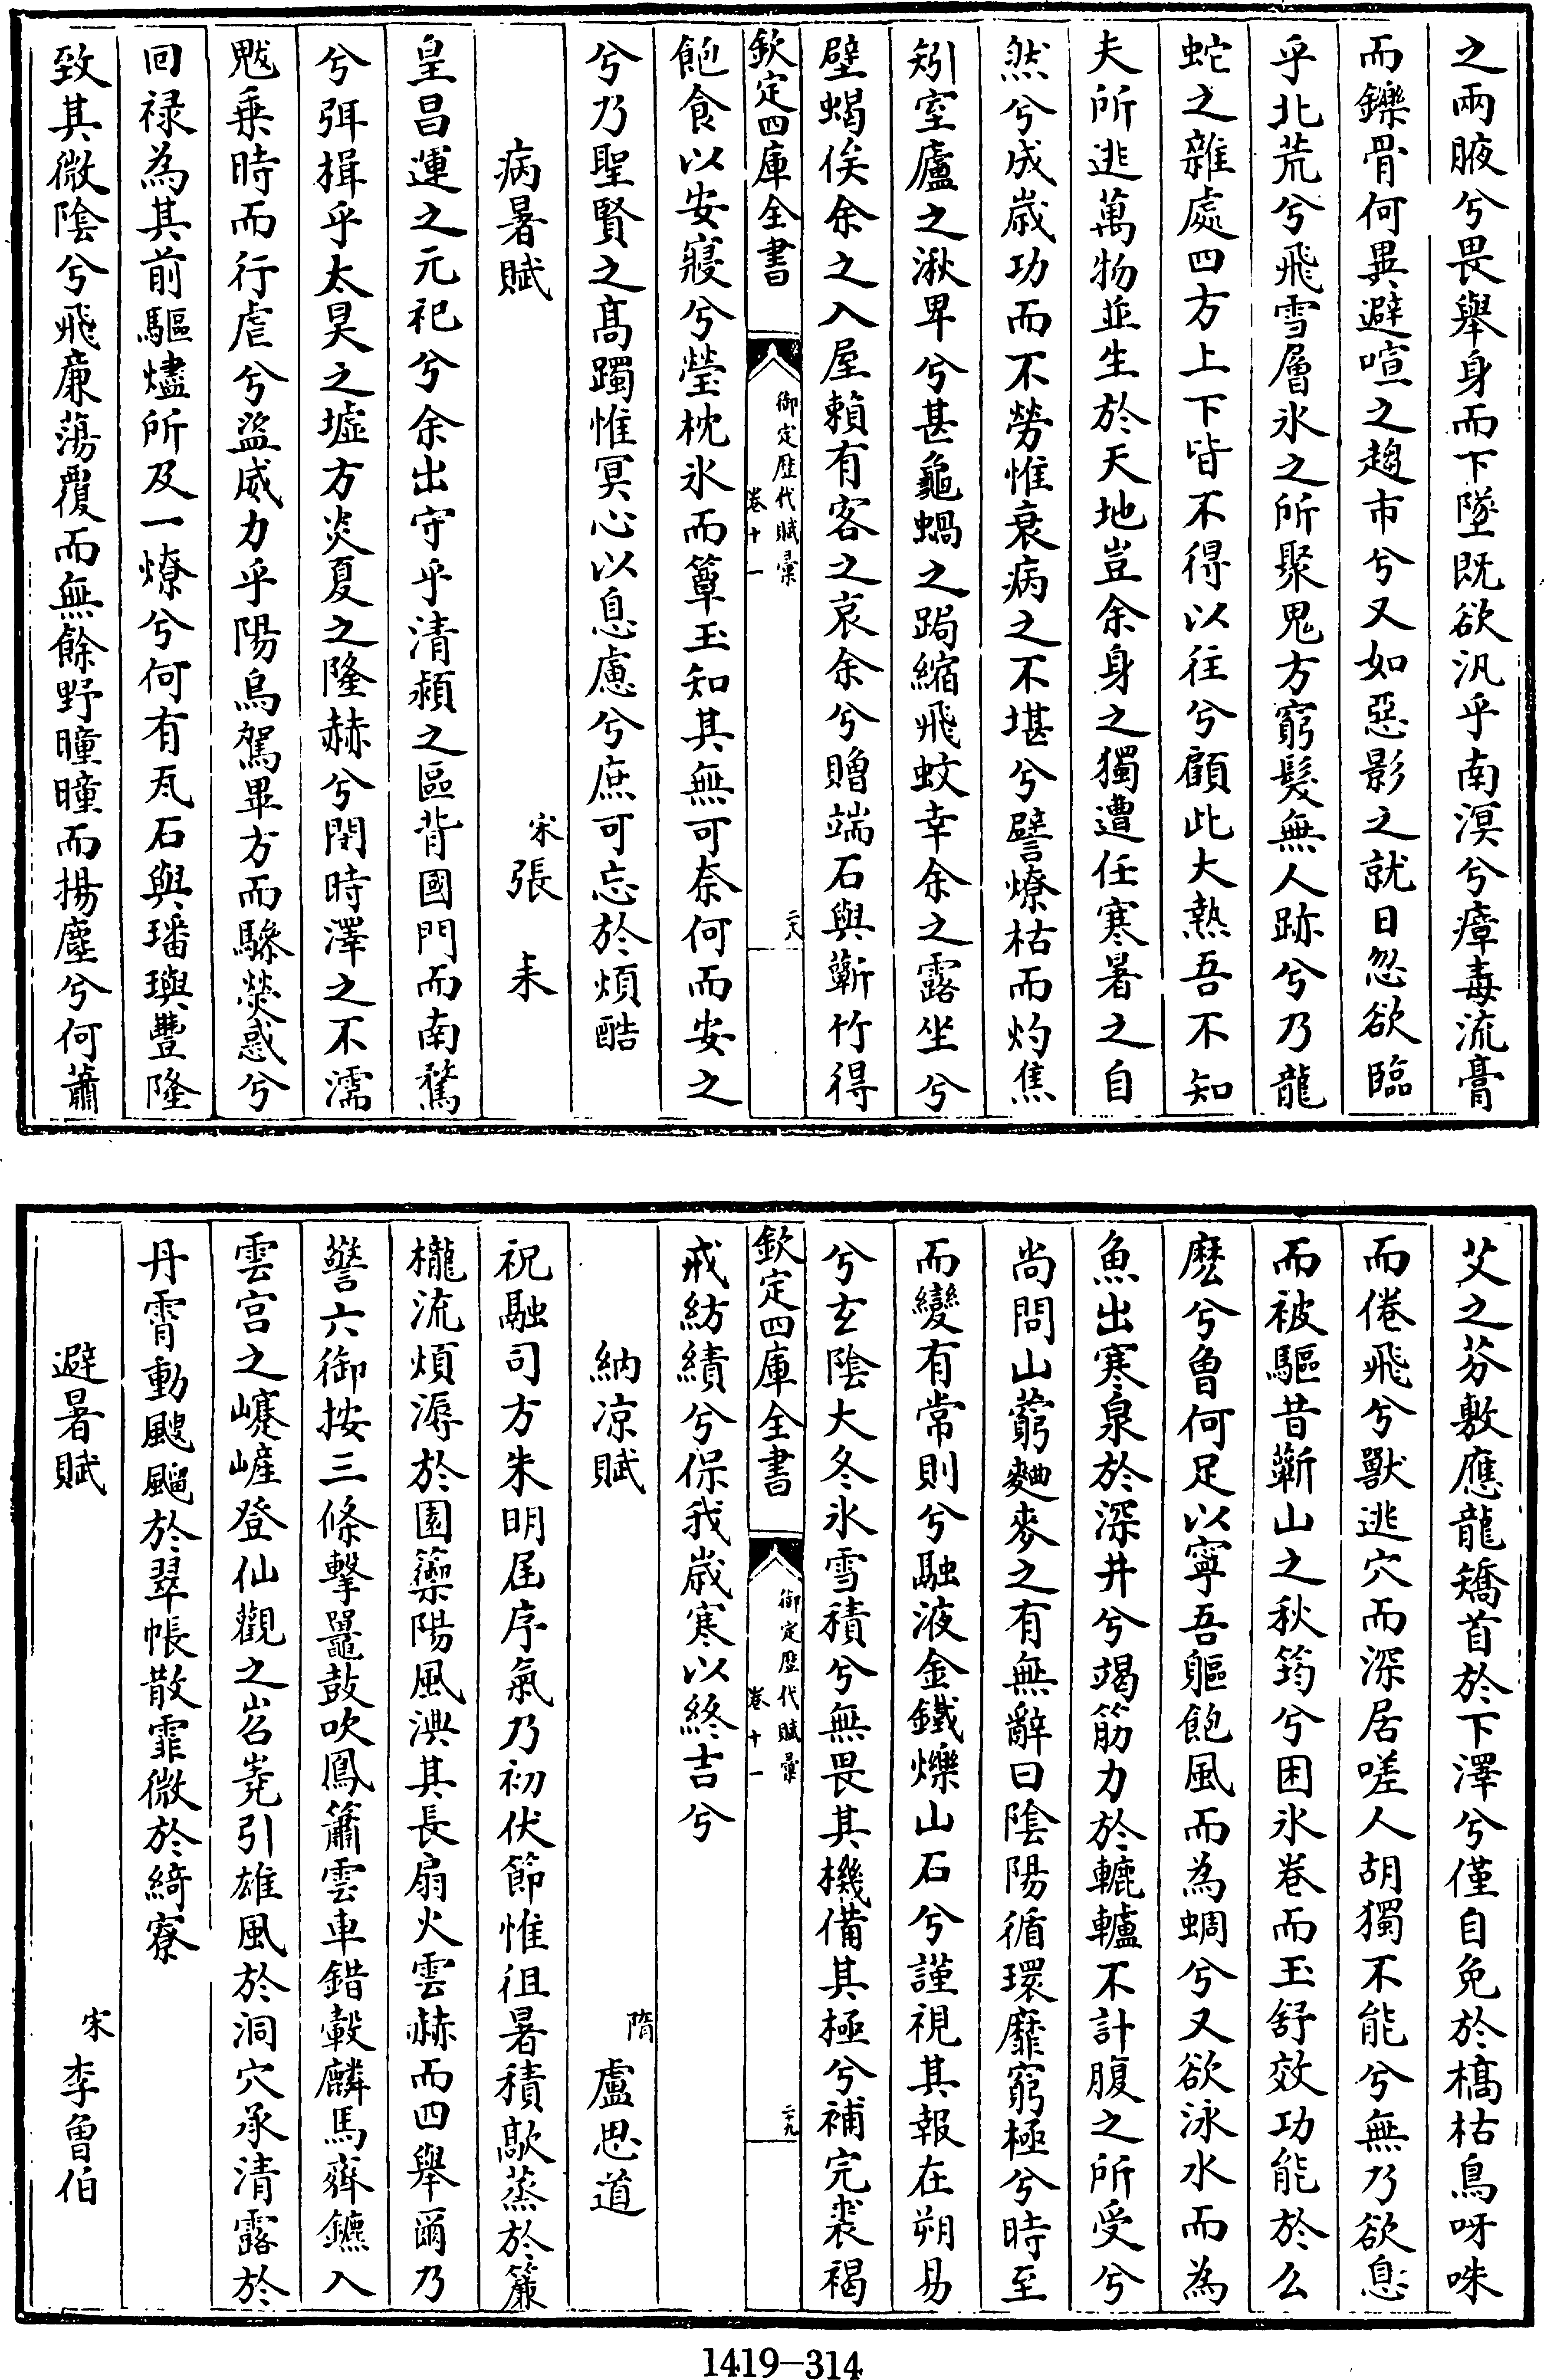 之兩腋兮畏舉身而下墜既欲汎乎南溟兮瘴毒流膏
而鑠骨何異避喧之趨市兮又如惡影之就日忽欲臨
乎北荒兮飛雪層氷之所聚鬼方窮髮無人跡兮乃龍
蛇之雜處四方上下皆不得以往兮顧此大熱吾不知
夫所逃萬物並生於天地豈余身之獨遭任寒暑之自
然兮成歲功而不勞惟衰病之不堪兮譬燎枯而灼焦
矧室廬之湫卑兮甚龜蝸之跼縮飛蚊幸余之露坐兮
壁蝎俟余之入屋賴有客之哀余兮贈端石與蘄竹得
欽定四庫全書
御定歷代賦彙
卷十一
二八
飽食以安寢兮瑩枕氷而簟玉知其無可奈何而安之
兮乃聖賢之髙躅惟冥心以息慮兮庶可忘於煩酷
病暑賦
宋張耒
皇昌運之元祀兮余出守乎清潁之區背國門而南騖
兮弭楫乎太昊之墟方炎夏之隆赫兮閔時澤之不濡
魃乗時而行虐兮盜威力乎陽烏駕畢方而驂熒惑兮
回禄為其前驅燼所及一燎兮何有瓦石與璠璵豐隆
致其微陰兮飛廉蕩覆而無餘野曈曈而揚塵兮何蕭
艾之芬敷應龍矯首於下澤兮僅自免於槁枯鳥呀咮
而倦飛兮獸逃穴而深居嗟人胡獨不能兮無乃欲息
而被驅昔蘄山之秋筠兮困氷卷而玉舒效功能於么
麽兮曾何足以寧吾軀飽風而為蜩兮又欲泳水而為
魚出寒泉於深井兮竭筋力於轆轤不計腹之所受兮
尚問山藭麯麥之有無辭曰陰陽循環靡窮極兮時至
而變有常則兮融液金鐵爍山石兮謹視其報在朔易
兮玄陰大冬氷雪積兮無畏其機備其極兮補完裘褐
欽定四庫全書
御定歷代賦彙
卷十一
二十九
戒紡績兮保我歲寒以終吉兮
納凉賦
隋盧思道
祝融司方朱明屆序氣乃初伏節惟徂暑積歊蒸於簾
櫳流煩溽於園籞陽風淟其長扇火雲赫而四舉爾乃
警六御按三條擊鼉鼓吹鳳簫雲車錯轂麟馬齊鑣入
雲宫之㠥嵼登仙觀之岧嶤引雄風於洞穴承清露於
丹霄動颼飀於翠帳散霏微於綺寮
避暑賦
宋李曾伯
1419-314